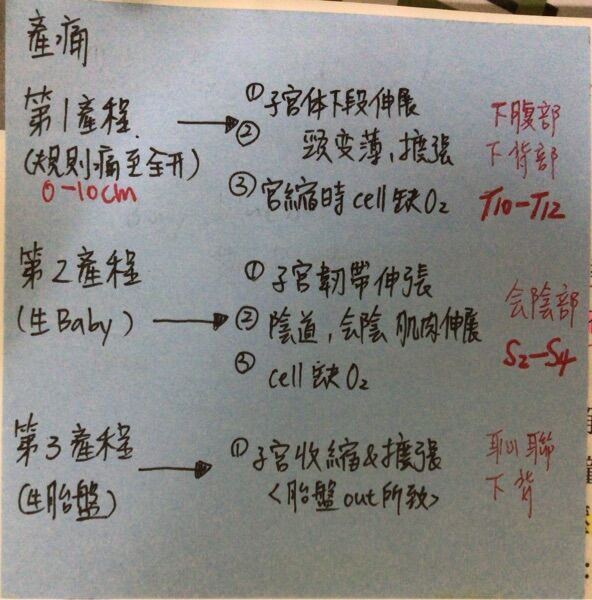 產痛
第1產程
(規則痛至全开)
0-10cm
① 子宮体下段伸展
② 頸变薄,擴張
③ 宮縮時 cell 缺O2
下腹部
下背部
T10-T12
第2產程
(生Baby)
① 子宮韌帶伸張
② 陰道,会陰 肌肉伸展
③ cell 缺O2
会陰部
S2-S4
第3產程
(生胎盤)
① 子宮收縮&擴張
<胎盤out所致>
恥聯
下背